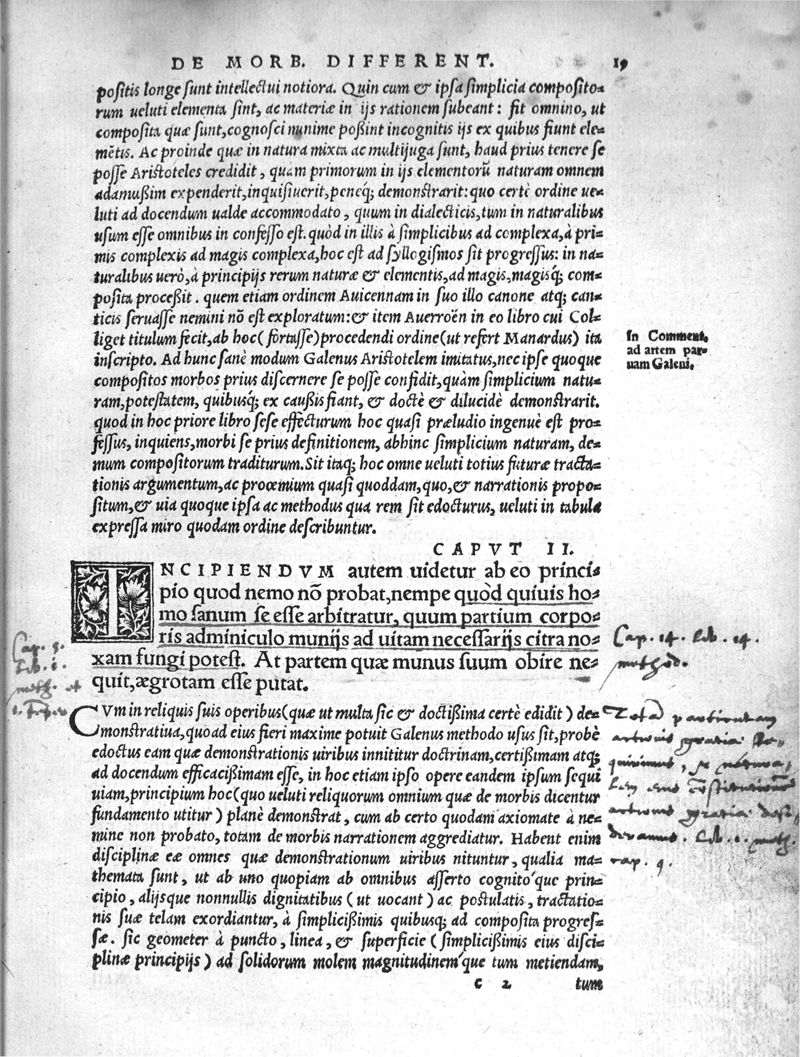 DE MORB. DIFFERENT. 19
positis longe sunt intellectui notiora. Quin cum & ipsa simplicia composito-
rum ueluti elementa sint, ac materiæ in ijs rationem subeant: fit omnino, ut
composita quæ sunt, cognosci minime poßint incognitis ijs ex quibus fiunt ele-
mẽtis. Ac proinde quæ in natura mixta ac multijuga sunt, haud prius tenere se
posse Aristoteles credidit, quàm primorum in ijs elementorũ naturam omnem
adamußim expenderit, inquisiuerit, peneq; demonstrarit: quo certè ordine ue-
luti ad docendum ualde accommodato, quum in dialecticis, tum in naturalibus
usum esse omnibus in confesso est. quòd in illis à simplicibus ad complexa, à pri-
mis complexis ad magis complexa, hoc est ad syllogismos sit progressus: in na-
turalibus uerò, à principijs rerum naturæ & elementis, ad magis, magisq; com-
posita proceßit. quem etiam ordinem Auicennam in suo illo canone atq; can-
ticis seruasse nemini nõ est exploratum: & item Auerroën in eo libro cui Col-
liget titulum fecit, ab hoc (fortasse) procedendi ordine (ut refert Manardus) ita
inscripto. Ad hunc sanè modum Galenus Aristotelem imitatus, nec ipse quoque
compositos morbos prius discernere se posse confidit, quàm simplicium natu-
ram, potestatem, quibusq; ex caußis fiant, & doctè & dilucidè demonstrarit.
quod in hoc priore libro sese effecturum hoc quasi præludio ingenuè est pro-
fessus, inquiens, morbi se prius definitionem, abhinc simplicium naturam, de-
mum compositorum traditurum. Sit itaq; hoc omne ueluti totius futuræ tracta-
tionis argumentum, ac proœmium quasi quoddam, quo, & narrationis propo-
situm, & uia quoque ipsa ac methodus qua rem sit edocturus, ueluti in tabula
expressa miro quodam ordine describuntur.
In Comment.
ad artem par-
uam Galeni.
CAPVT II.
INCIPIENDVM autem uidetur ab eo princi-
pio quod nemo nõ probat, nempe quòd quiuis ho-
mo sanum se esse arbitratur, quum partium corpo-
ris adminiculo munijs ad uitam necessarijs citra no-
xam fungi potest. At partem quæ munus suum obire ne-
quit, ægrotam esse putat.
Cap. 9.
Lib. 1.
meth. et
Cap. 14. Lib. 14.
method.
CVm in reliquis suis operibus (quæ ut multa sic & doctißima certè edidit) de-
monstratiua, quo ad eius fieri maxime potuit Galenus methodo usus sit, probè
edoctus eam quæ demonstrationis uiribus innititur doctrinam, certißimam atq;
ad docendum efficacißimam esse, in hoc etiam ipso opere eandem ipsum sequi
uiam, principium hoc (quo ueluti reliquorum omnium quæ de morbis dicentur
fundamento utitur) planè demonstrat, cum ab certo quodam axiomate à ne-
mine non probato, totam de morbis narrationem aggrediatur. Habent enim
disciplinæ eæ omnes quæ demonstrationum uiribus nituntur, qualia ma-
themata sunt, ut ab uno quopiam ab omnibus asserto cognito que prin-
cipio, alijsque nonnullis dignitatibus (ut uocant) ac postulatis, tractatio-
nis suæ telam exordiantur, à simplicißimis quibusq; ad composita progres-
sæ. sic geometer à puncto, linea, & superficie (simplicißimis eius disci-
plinæ principijs) ad solidorum molem magnitudinem que tum metiendam,
c 2 tum
actionis gratia
actionis gratia
Lib. 1. meth.
cap. 9.